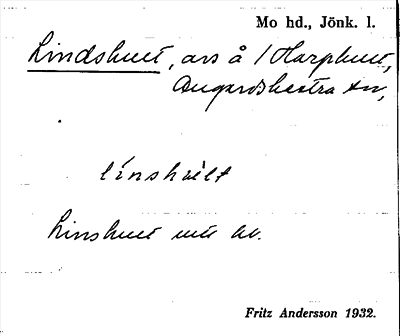 Mo hd., Jönk. l.
Lindshult, avs å 1 Harphult,
Angerdshestra sn,
línshùlt
Linshult
Fritz Andersson 1932.